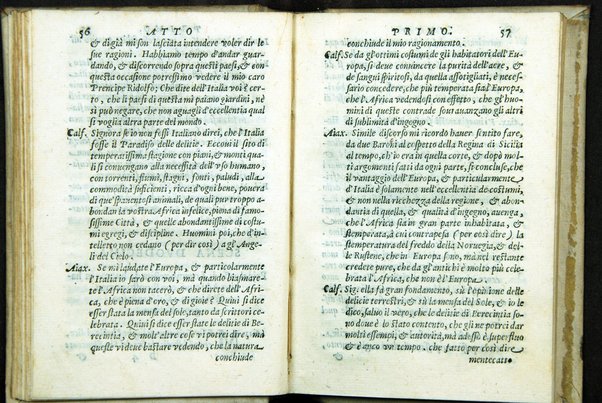 56 ATTO
& digià mi son lasciata intendere voler dir le
sue ragioni. Habbiamo tempo d'andar guar-
dando, & discorrendo sopra questi paesi, & con
questa occasione potressimo vedere il mio caro
Prencipe Ridolfo; Che dite dell'Italia voi? è cer-
to, che li paesi di questa mi paiano giardini, nè
si può negare, che non auguagli d'eccellentia qual
si voglia altra parte del mondo.
Calf. Signora se io non fossi Italiano direi, che l'Italia
fosse il Paradiso delle delitie. Eccoui il sito di
temperatissima stagione con piani, & monti qua-
li si conuengano alla necessità dell'vso humano,
con torrenti, fiumi, stagni, fonti, paludi, alla
commodità soficienti, ricca d'ogni bene, pouera
di que' spauentosi animali, de quali pur troppo a-
bondan la vostra Africa infelice, piena di famo-
sissime Città, & quelle abondantissime di costu-
mi egregi, & discipline. Huomini poi, che d'in-
telletto non cedano (per dir così) a gl'Ange-
li del Cielo.
Aiax. Se mi laudate l'Europa, & particolarmente
l'Italia io sarò con voi, ma quando biasmare-
te l'Africa non tacerò, & che direte dell'Afri-
ca, che è piena d'oro, & di gioie? Quiui si dice
esser stata la mensa del sole, tanto da scrittori ce-
lebrata. Quiui si dice esser state le delitie di Be-
recintia, & molt'altre cose vi potrei dire, ma
queste vi deue bastare vedendo, che la natura
conchiude
PRIMO. 57
conchiude il mio ragionamento.
Calf. Se da gl'ottimi costumi de gli habitatori dell'Eu-
ropa, si deue conuincere la purità dell'aere, &
de sangui spiritosi, da quella assotigliati, è neces-
sario concedere, che più temperata sia l'Europa,
che l'Africa vedendosi con effetto, che gl'huo-
mini di queste contrade sourauanzano gli altri
di sublimità d'ingegno.
Aiax. Simile discorso mi ricordo hauer sentito fare,
da due Baroni al cospetto della Regina di Sicilia
al tempo, ch'io era in quella corte, & dopò mol-
ti argomenti fatti da ogni parte, si concluse, che
il vantaggio dell'Europa, & particularmente
d'Italia è solamente nell'eccellentia de costumi,
& non nella ricchezza della regione, & abon-
dantia di quella, & qualità d'ingegno, auenga,
che l'Africa sia in gran parte inhabitata, &
stemperata, à cui contrapesa (per così dire) la
stemperatura del freddo della Noruegia, & del-
le Rustene, che in Europa sono, ma nel restante
credete pure, che da gl'antichi è molto più cele-
brata l'Africa, che non è l'Europa.
Calf. Sig. ella fà gran fondamento, sù l'opinione delle
delicie terrestri, & sù la mensa del Sole, & io le
dico, saluo il vero, che le delitie di Perecintia so-
no doue è lo Stato contento, che gli ne potrei dar
molti essempi, & autorità, ma adesso è superfluo
& è anco vn tempo, che fatto per così dire
mentecatto